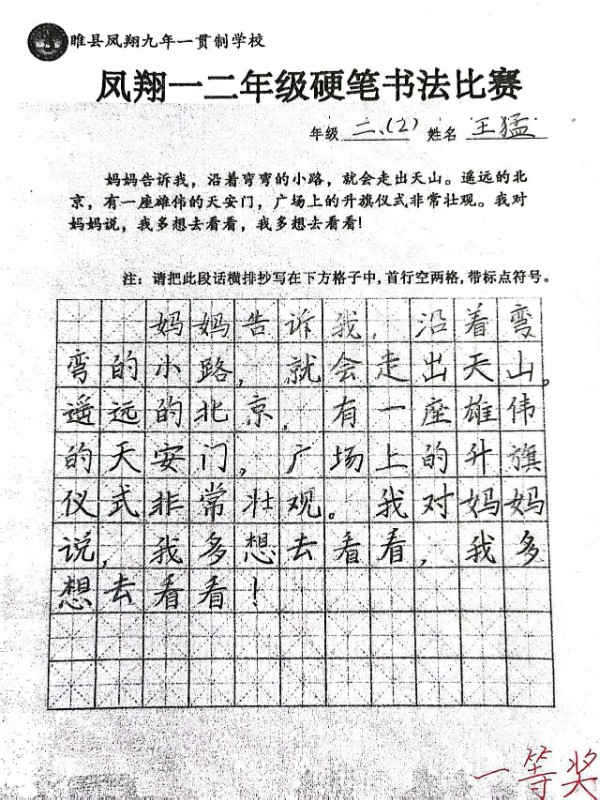 睢县凤翔九年一贯制学校
凤翔一二年级硬笔书法比赛
年级 二、(2) 姓名 王猛
妈妈告诉我，沿着弯弯的小路，就会走出天山。遥远的北
京，有一座雄伟的天安门，广场上的升旗仪式非常壮观。我对
妈妈说，我多想去看看，我多想去看看!
注：请把此段话横排抄写在下方格子中,首行空两格,带标点符号。
妈妈告诉我，沿着弯
弯的小路，就会走出天山。
遥远的北京，有一座雄伟
的天安门，广场上的升旗
仪式非常壮观。我对妈妈
说，我多想去看看，我多
想去看看！
一等奖